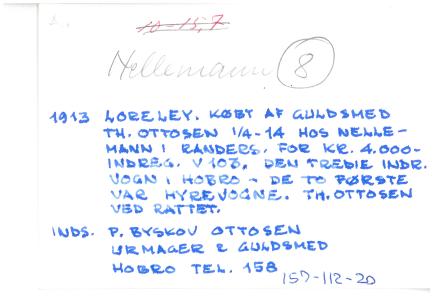 10-15,7
Nellemann 8
1913 LORELEY. KØBT AF GULDSMED
TH. OTTOSEN 1/4-14 HOS NELLE-
MANN I RANDERS. FOR KR. 4.000-
INDREG. V 103, DEN TREDIE INDR.
VOGN I HOBRO - DE TO FØRSTE
VAR HYREVOGNE. TH. OTTOSEN
VED RATTET.
INDS. P. BYSKOV OTTOSEN
URMAGER & GULDSMED
HOBRO TEL. 158
157-112-20